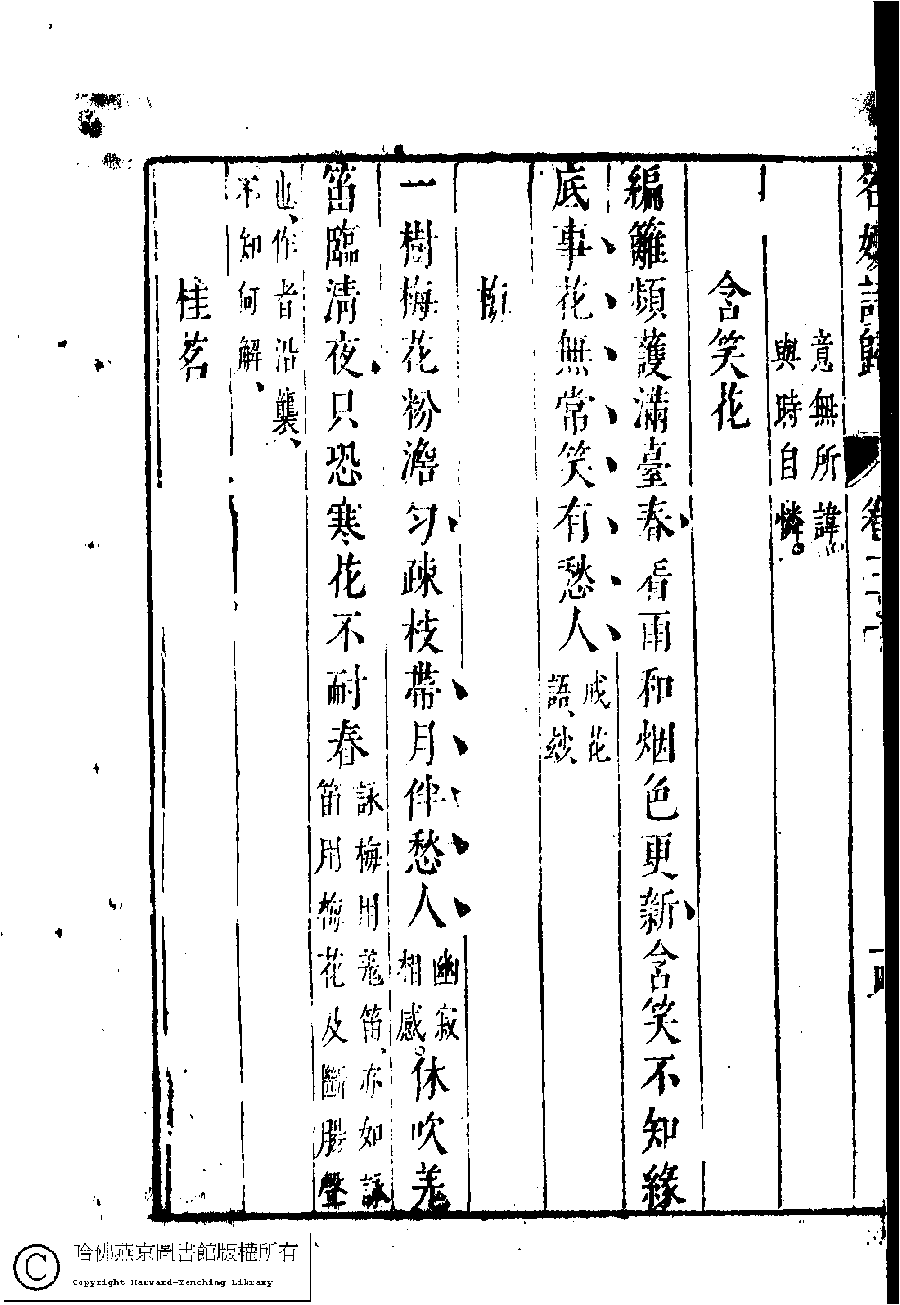 名媛詩歸 卷二十 一
意無所諱
與時自憐。
含笑花
編籬頻護滿臺春、看雨和烟色更新、含笑不知緣
底事花無常笑有愁人 成花
語、妙
梅
一樹梅花粉澹匀、疎枝帶月伴愁人 幽寂
相感。休吹羗
笛臨清夜、只恐寒花不耐春 詠梅用羗笛、亦如詠
笛用梅花及斷腸聲
也、作者沿襲、
不知何解、
桂茗
哈佛燕京圖書館版權所有
Copyright Harvard-Yenching Library